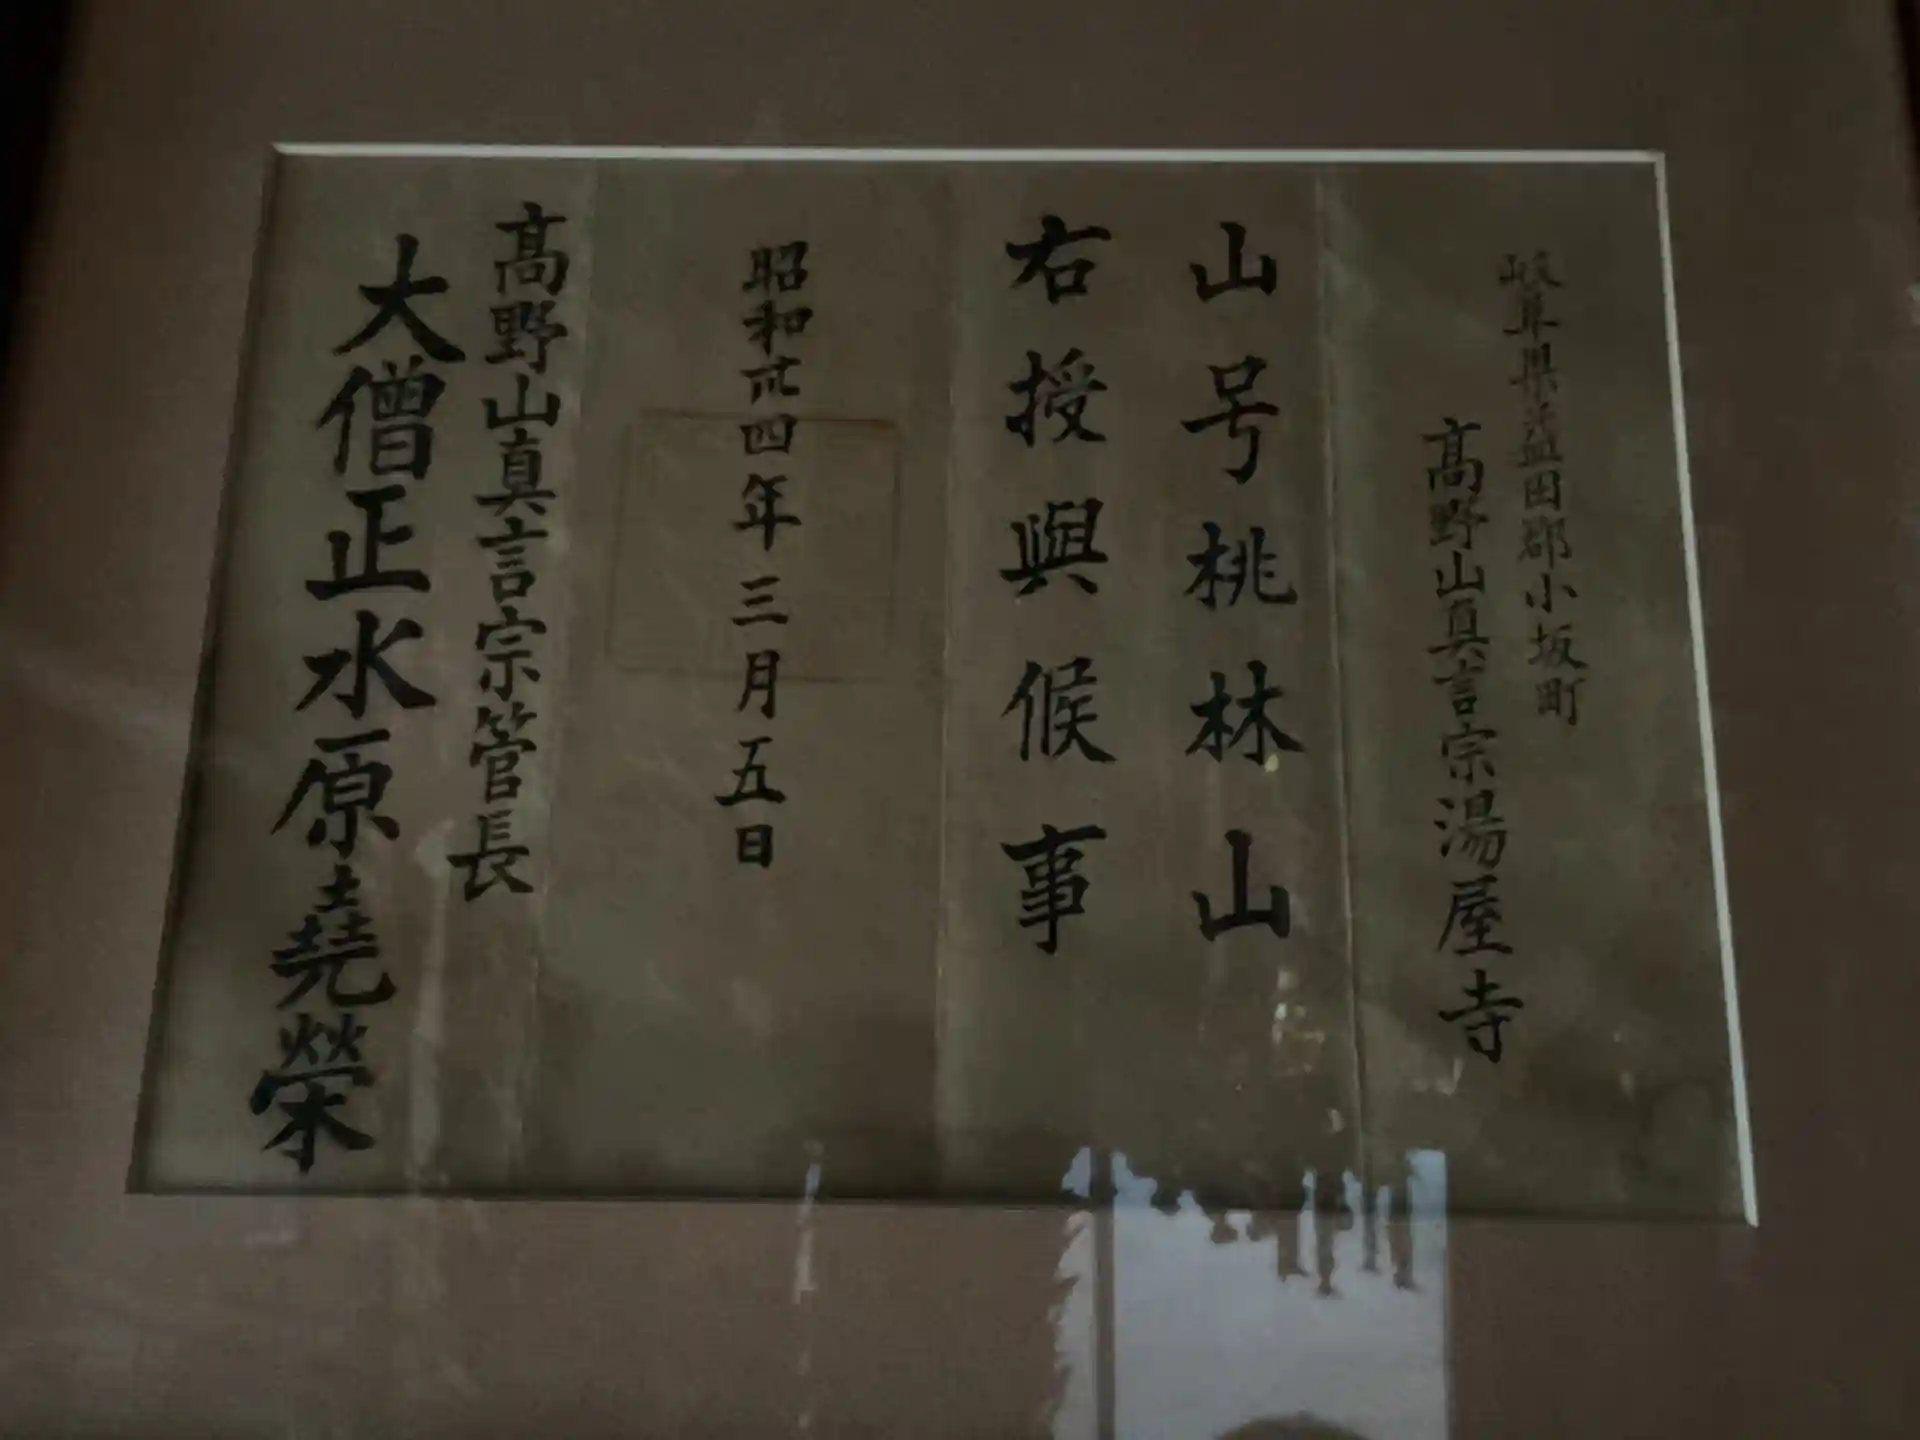 岐阜県益田郡小坂町
髙野山真言宗湯屋寺
山号桃林山
右授與候事
昭和弐四年三月五日
髙野山真言宗管長
大僧正水原堯榮